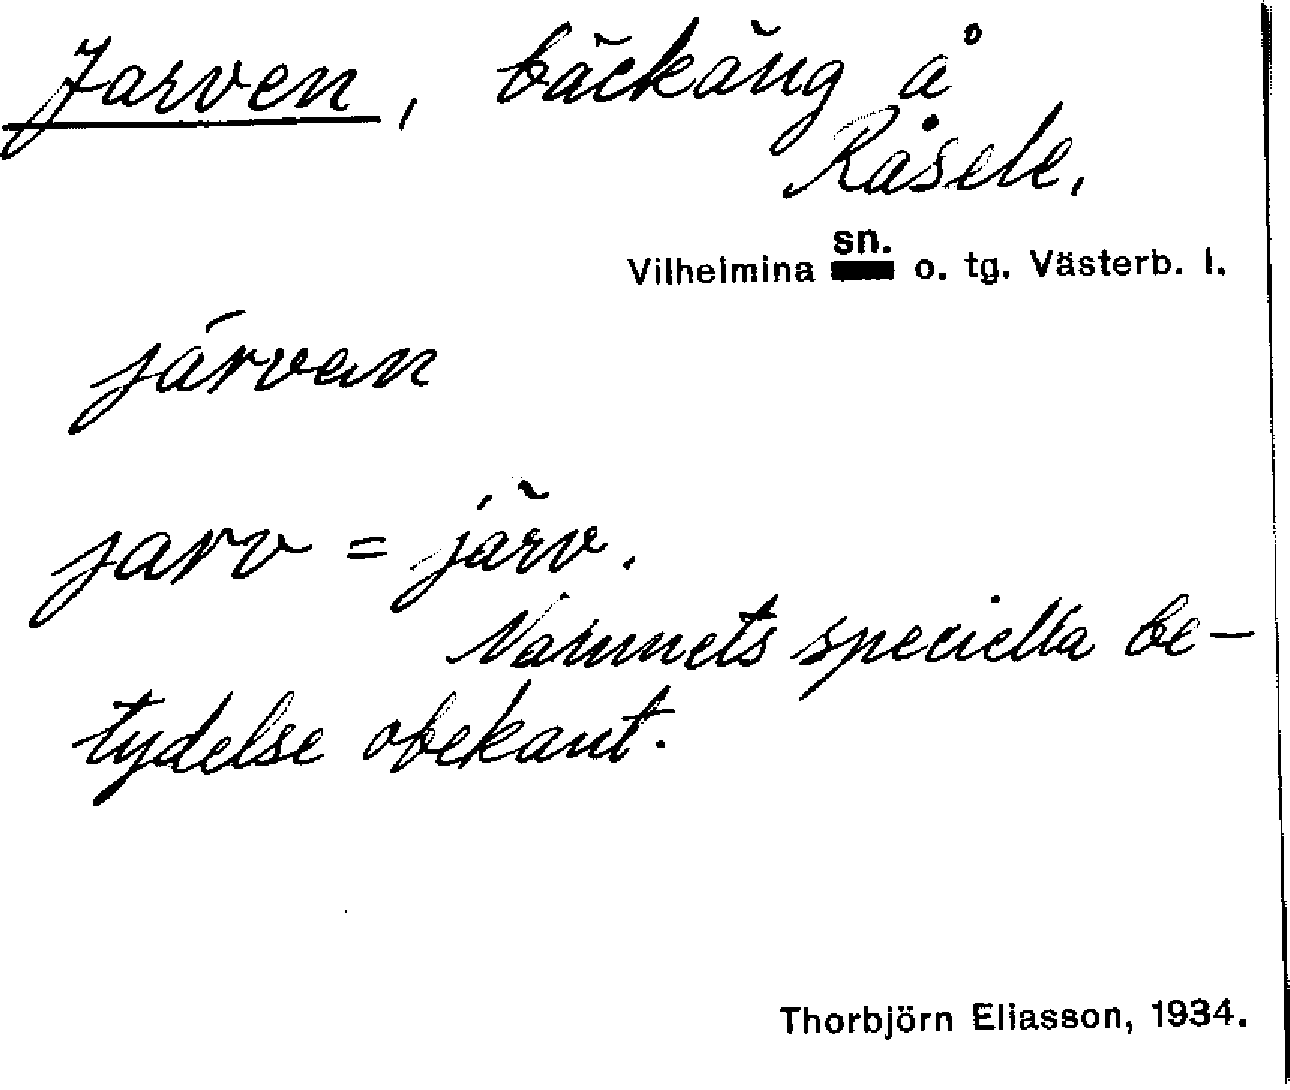 Jarven, bäckäng å
Råsele.
Vilhelmina sn. o. tg. Västerb. l.
járvan
jarv = järv.
Namnets speciella be-
tydelse obekant.
Thorbjörn Eliasson, 1934.